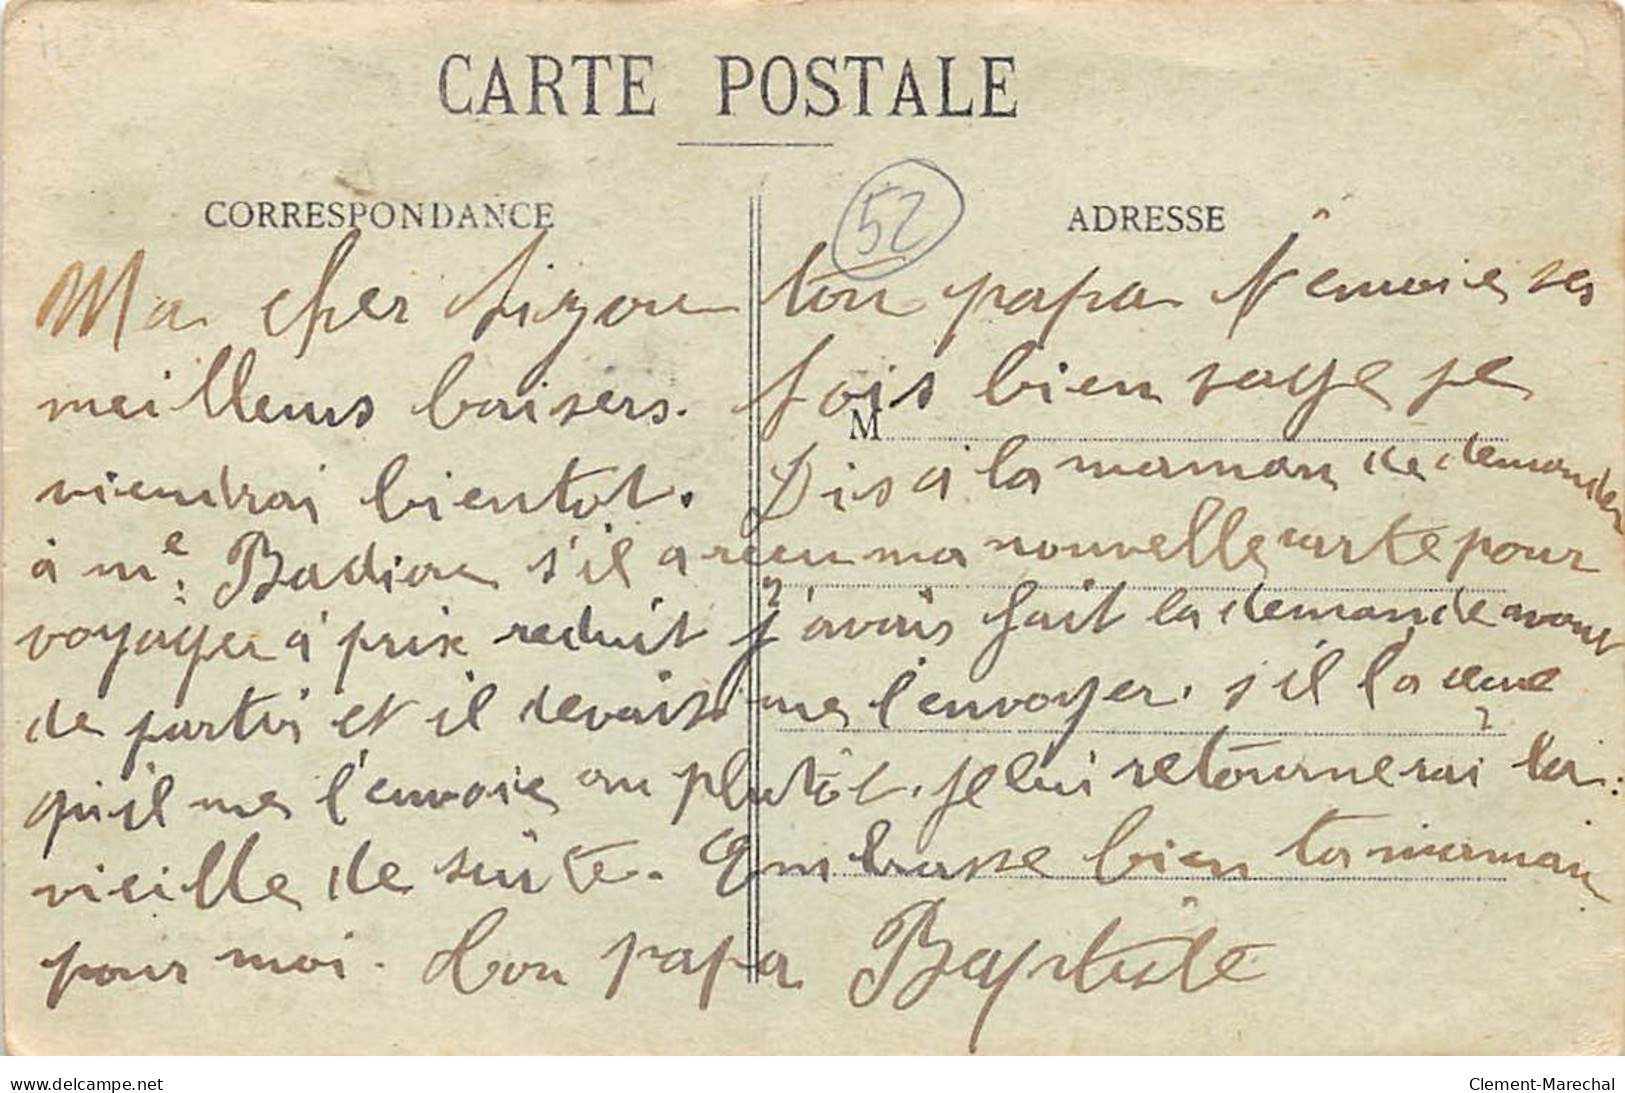 CARTE POSTALE
CORRESPONDANCE
52
ADRESSE
Ma cher Lizou ton papa t'envoie ses
meilleurs baisers. Sois bien sage je
M
viendrai bientot. Dis à la maman de demander
à me. Badiou s'il a reçu ma nouvelle carte pour
voyager à prix reduit j'avais fait la demande avant
de partir et il devait me l'envoyer. s'il la reçue
qu'il me l'envoie au plutôt. je lui retournerai la
vieille de suite. Embrasse bien ta maman
pour moi. ton papa Baptiste
www.delcampe.net
Clement-Marechal